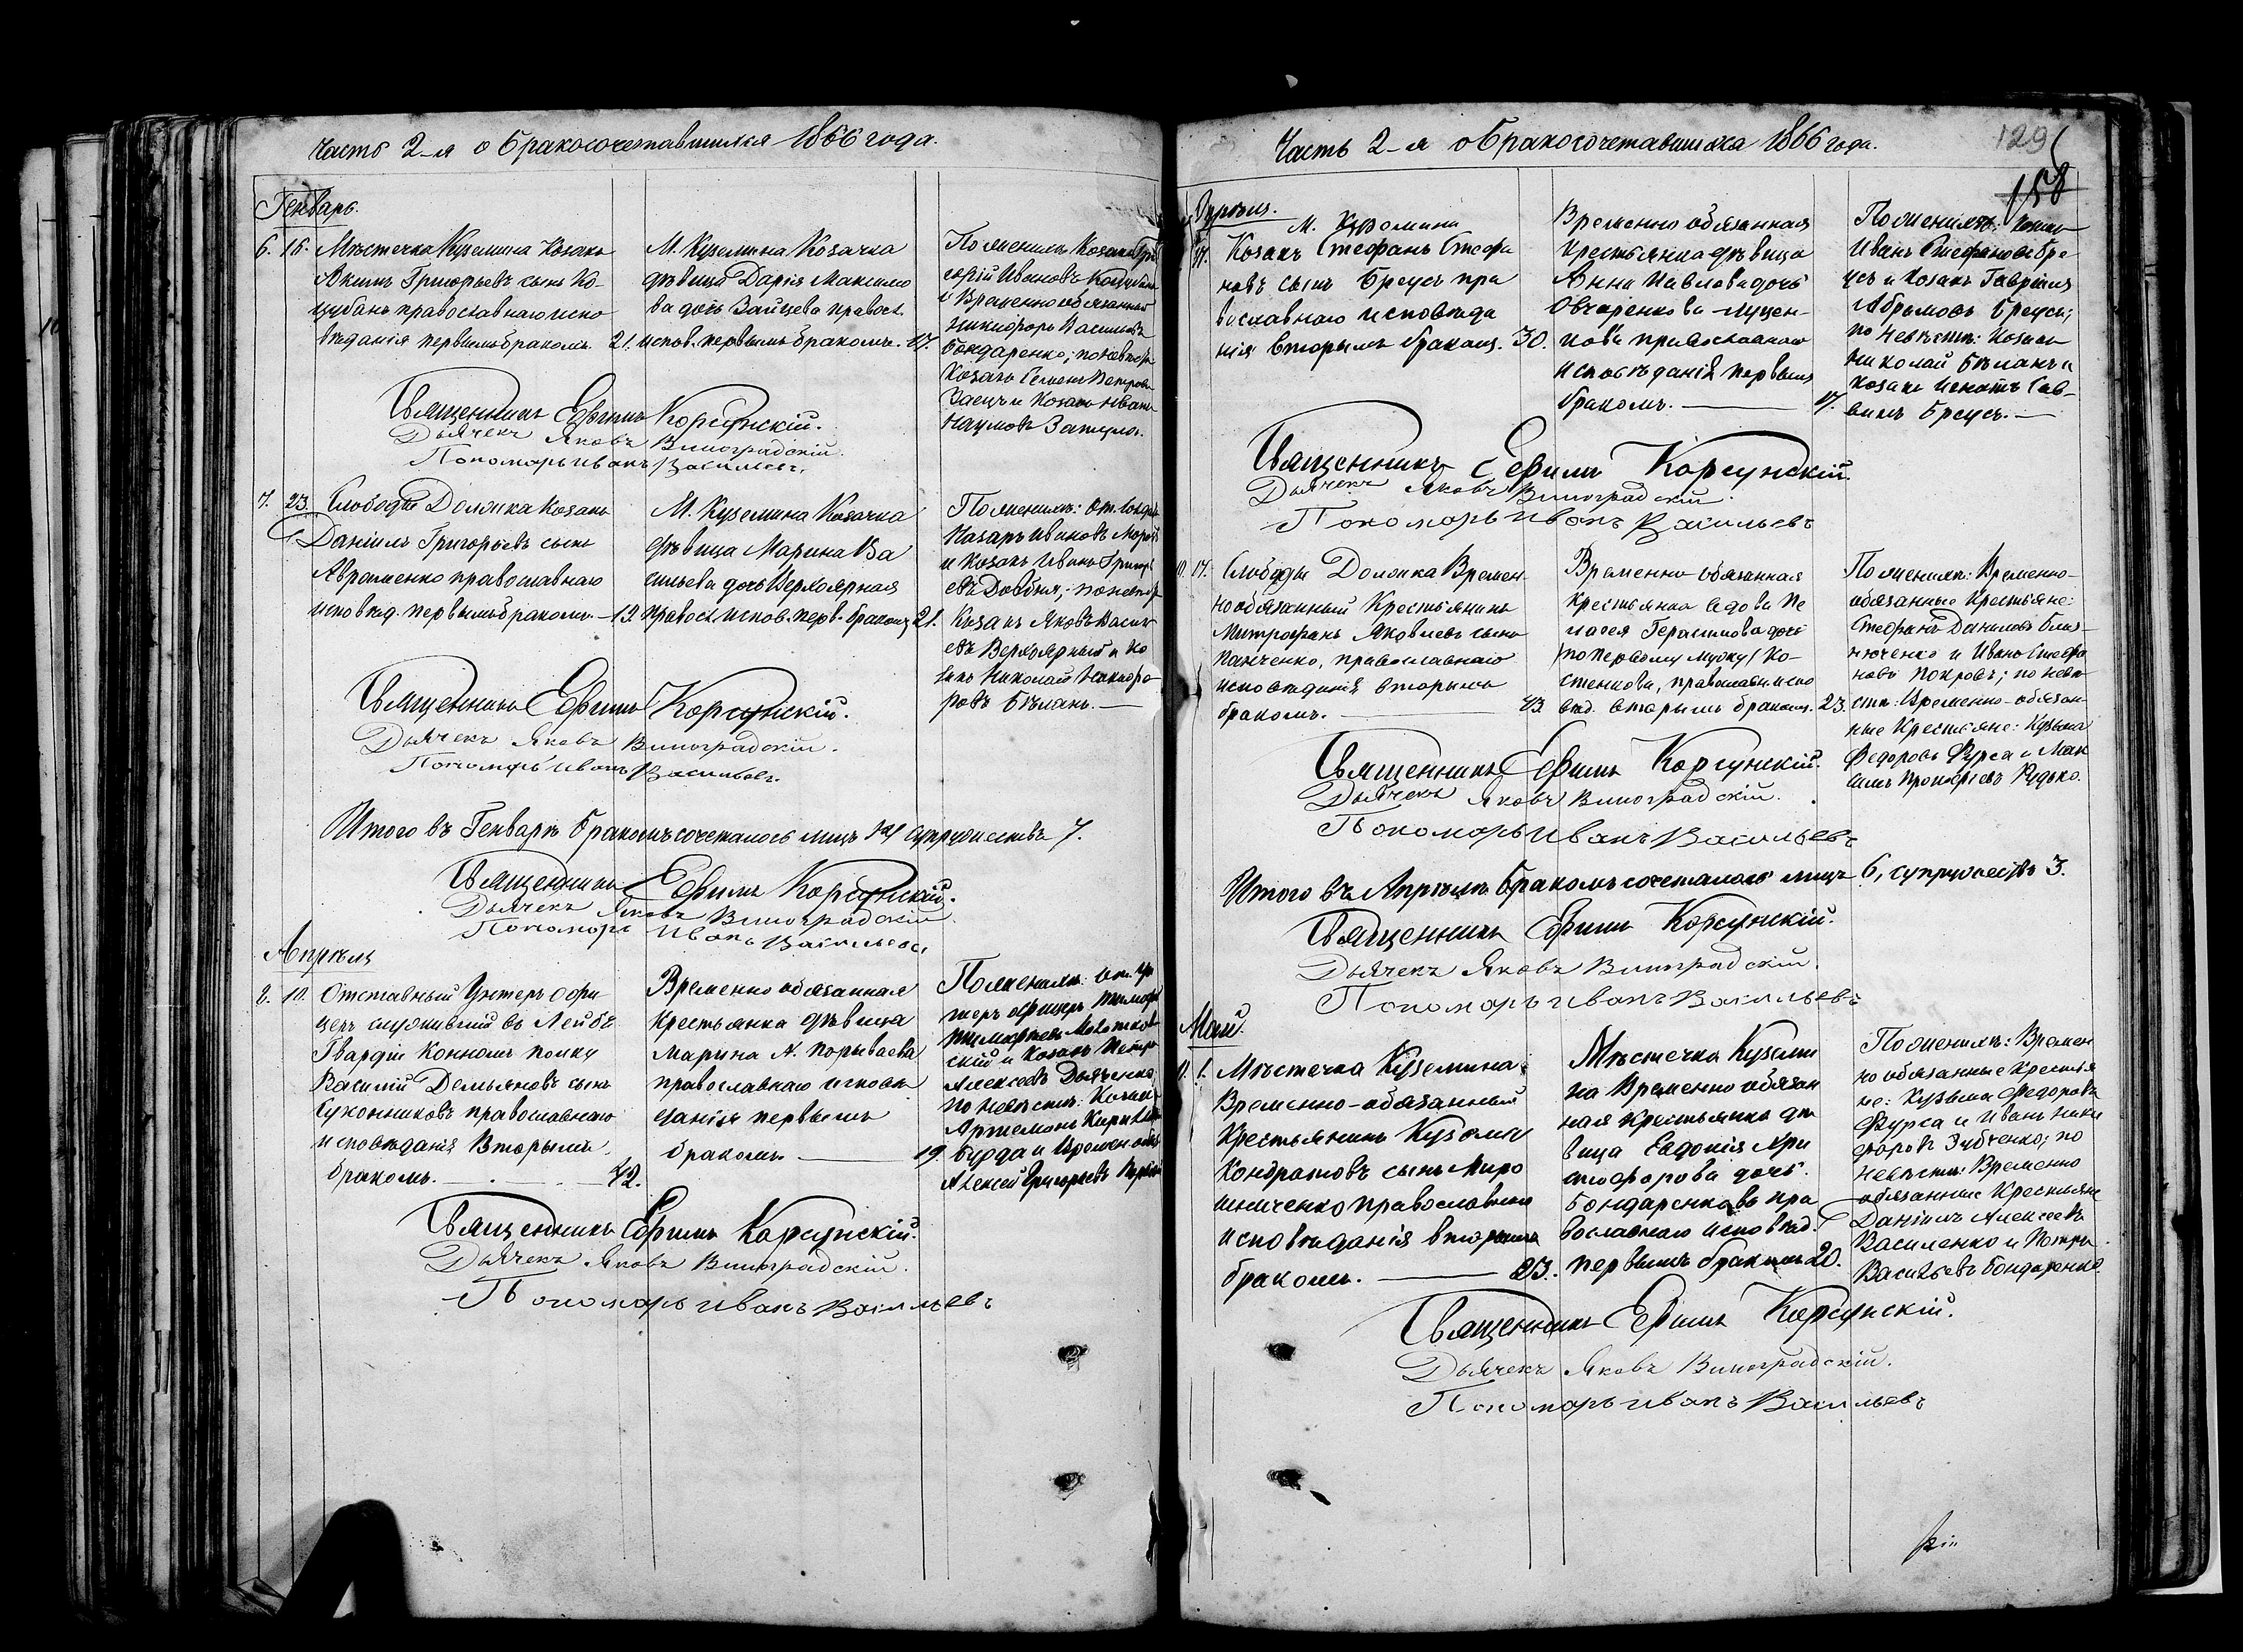 Часть 2-я о бракосочетавшихся 1866 года.
Генварь.
6. 16. Мѣстечка Куземина козакъ
Акимъ Григорьевъ сынъ Ко-
цубанъ православнаго испо
вѣданія первымъ бракомъ. 21.
М. Куземина Козачка
дѣвица Дарія Максимо
ва дочь Зайцева правосл.
испов. первымъ бракомъ. 17.
По женихѣ: Козаки
горій Ивановъ
и Временно обязанный
Никифоръ
Бондаренко; по невѣстѣ
Козакъ Семенъ Петровъ
Заецъ и Козакъ Иванъ
Наумовъ
Священникъ Ефимъ Корсунскій.
Дьячекъ Яковъ Виноградскій.
Пономарь Иванъ Васильевъ.
7. 23. Слободы Должка Козакъ
Даніилъ Григорьевъ сынъ
Авраменко православнаго
исповѣд. первымъ бракомъ. 19.
М. Куземина Козачка
дѣвица Марина Ва
сильева дочь Верхоярная
правосл. испов. перв. бракомъ 21.
По женихѣ:
Назаръ Ивановъ
и Козакъ Иванъ
Довбня; по невѣстѣ
Козакъ Яковъ
евъ Верхоярный и Ко
закъ Николай Никифо
ровъ Бѣланъ.
Священникъ Ефимъ Корсунскій.
Дьячекъ Яковъ Виноградскій.
Пономарь Иванъ Васильевъ.
Итого въ Генварѣ бракомъ сочеталось лицъ 14, супружествъ 7.
Священникъ Ефимъ Корсунскій.
Дьячекъ Яковъ Виноградскій
Пономарь Иванъ Васильевъ
Апрѣль
8. 10. Отставный Унтеръ Офи
церъ служившій въ Лейбъ
Гвардіи Конномъ полку
Василій Демьяновъ сынъ
Сухонниковъ православнаго
исповѣданія Вторымъ
бракомъ. 42.
Временно обязанная
Крестьянка дѣвица
Марина А. Порываева
православнаго исповѣ
данія первымъ
бракомъ 19.
По женихѣ: От. Ун
теръ офицеръ
скій и Козакъ Петръ
Алексѣевъ
по невѣстѣ: Козакъ
Артемонъ
Бурда и Временно об.
Алексѣй Григорьевъ
Священникъ Ефимъ Корсунскій.
Дьячекъ Яковъ Виноградскій.
Пономарь Иванъ Васильевъ
Часть 2-я о бракосочетавшихся 1866 года.
129
158
Апрѣль.
М. Куземина
17. Козакъ Стефанъ Стефа
новъ сынъ Бреусъ пра
вославнаго исповѣда
нія вторымъ бракомъ. 30.
Временно обязанная
Крестьянка дѣвица
Анна Павлова дочь
Овчаренкова
православнаго
исповѣданія первымъ
бракомъ. 17.
По женихѣ: Козакъ
Иванъ Стефановъ Бре
усъ и Козакъ Гавріилъ
Абрамовъ Бреусъ;
по невѣстѣ: Козакъ
Николай Бѣланъ и
козакъ Игнатъ Сав-
винъ Бреусъ.
Священникъ Ефимъ Корсунскій.
Дьячекъ Яковъ Виноградскій.
Пономарь Иванъ Васильевъ
10. 17. Слободы Должка Времен-
но обязанный Крестьянинъ
Митрофанъ Яковлевъ сынъ
Панченко, православнаго
исповѣданія вторымъ
бракомъ. 43.
Временно-обязанная
Крестьянка вдова Пе
лагея Герасимова дочь
/по первому мужу/ Ко-
стенкова, православн. испо
вѣд. вторымъ бракомъ. 23.
По женихѣ: Временно-
обязанные Крестьяне:
Стефанъ Даниловъ
и Иванъ Стефа
новъ Покровъ; по невѣ
стѣ: Временно-обязан-
ные Крестьяне: Кузьма
Федоровъ Фурса и Мак
симъ Прокофьевъ Рудько.
Священникъ Ефимъ Корсунскій.
Дьячекъ Яковъ Виноградскій.
Пономарь Иванъ Васильевъ
Итого въ Апрѣлѣ бракомъ сочеталось лицъ 6, супружествъ 3.
Священникъ Ефимъ Корсунскій.
Дьячекъ Яковъ Виноградскій.
Пономарь Иванъ Васильевъ
Май.
11. 1. Мѣстечка Куземина
Временно-обязанный
Крестьянинъ Кузьма
Кондратовъ сынъ Миро
шниченко православнаго
исповѣданія вторымъ
бракомъ. 23.
Мѣстечка Куземи
на Временно обязан
ная Крестьянка дѣ
вица Евдокія Хри
стофорова дочь
Бондаренкова пра
вославнаго исповѣд.
первымъ бракомъ 20.
По женихѣ: Времен
но обязанные Крестья
не: Кузьма Федоровъ
Фурса и Иванъ Ники
форовъ Зубченко; по
невѣстѣ: Временно
обязанные Крестьяне
Даніилъ Алексѣевъ
Василенко и Петръ
Васильевъ Бондаренко.
Священникъ Ефимъ Корсунскій.
Дьячекъ Яковъ Виноградскій.
Пономарь Иванъ Васильевъ